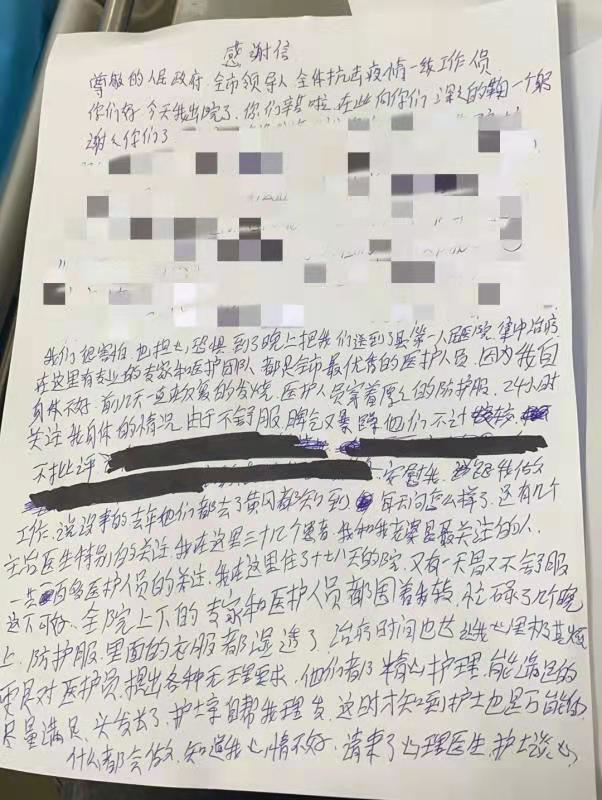 感谢信
尊敬的人民政府.全市领导人.全体抗击疫情一线工作员
你们好.今天我出院了.你们辛苦啦.在此向你们深深的鞠一个躬
谢谢你们了
我们很害怕.也担心.恐惧.到了晚上把我们送到了县第一人民医院.集中治疗
在这里有专业的专家和医护团队人都是全市最优秀的医护人员.因为我自
身体不好.前几天一直反复的发烧.医护人员穿着厚厚的防护服.24小时
关注我身体的情况.由于不舒服.脾气又暴躁.他们不计较
不批评
安慰我.给我做
工作.说没事的去年他们都去了黄冈都
每天问怎么样了.还有几个
主治医生特别的关注.我在这里三十几个患者.我和我
是最关注的人.
一共百多医护人员的关注.我在这里住了十七八天的院.又有一天胃又不舒服
这下可好.全院上下的专家和医护人员都围着我转.忙碌了几个晚
上.防护服.里面的衣服都湿透了.治疗时间也长我心里极其烦
更是对医护员.提出各种无理要求.他们都精心护理.能满足的
尽量满足.头发长了.护士亲自帮我理发.这时才知到护士也是万能的
什么都会做.知道我心情不好.请来了心理医生.护士谈心